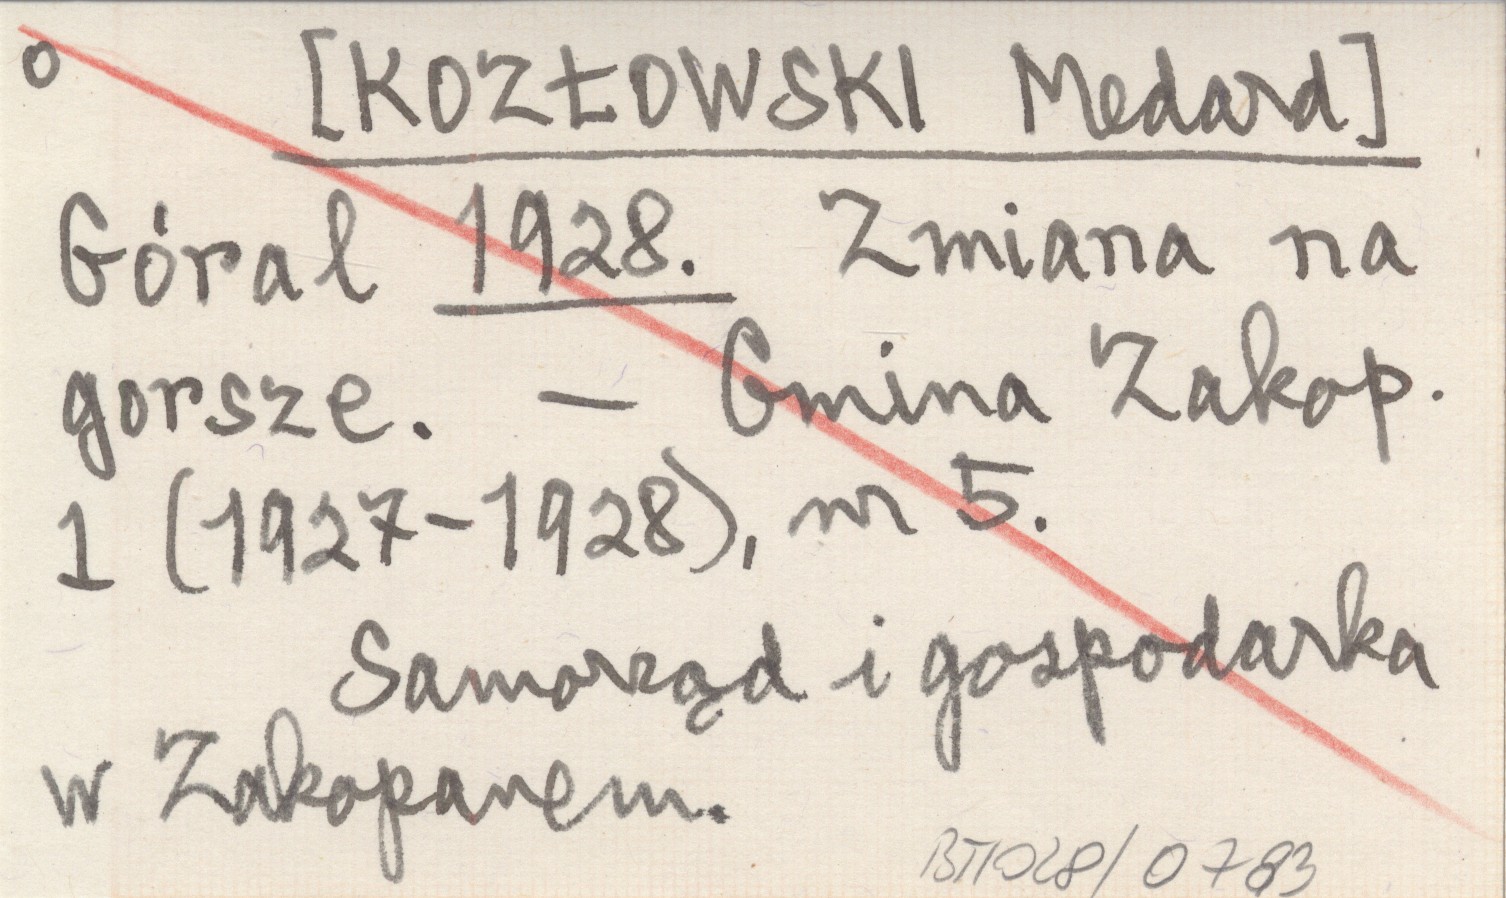 o [KOZŁOWSKI Medard]
Góral 1928. Zmiana na
gorsze. — Gmina Zakop.
1 (1927-1928), nr 5.
Samorząd i gospodarka
w Zakopanem.
0783